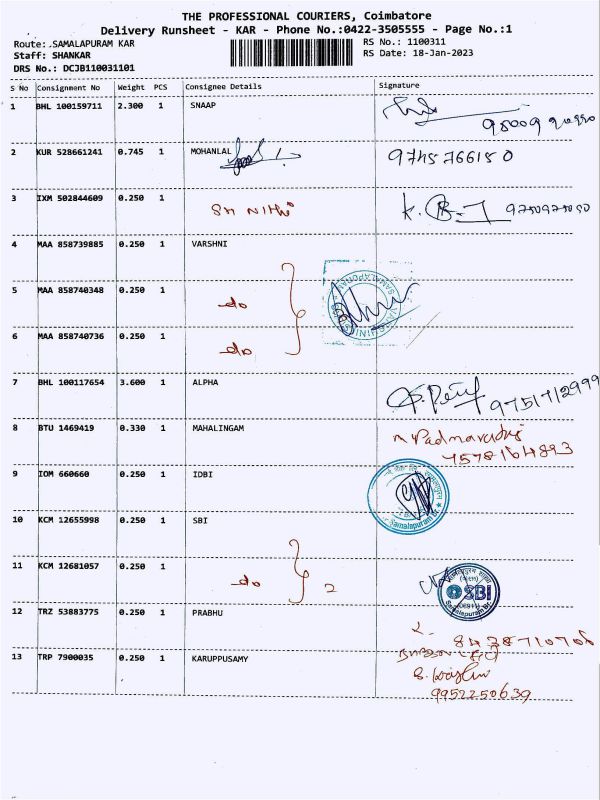 THE PROFESSIONAL COURIERS, Coimbatore
Delivery Runsheet - KAR - Phone No.:0422-3505555 - Page No.:1
Route: SAMALAPURAM KAR
RS No.: 1100311
Staff: SHANKAR
RS Date: 18-Jan-2023
DRS No.: DCJB110031101
S No Consignment No Weight PCS Consignee Details Signature
1 BHL 100159711 2.300 1 SNAAP
2 KUR 528661241 0.745 1 MOHANLAL 9745766150
3 IXM 502844609 0.250 1 Sri Nithi K.
4 MAA 858739885 0.250 1 VARSHNI
5 MAA 858740348 0.250 1 do
6 MAA 858740736 0.250 1 do
7 BHL 100117654 3.600 1 ALPHA 9751712999
8 BTU 1469419 0.330 1 MAHALINGAM
9 IOM 660660 0.250 1 IDBI
Samalapuram Br.
10 KCM 12655998 0.250 1 SBI
11 KCM 12681057 0.250 1 do 2
SBI
Samalapuram Br
12 TRZ 53883775 0.250 1 PRABHU
8438710708
13 TRP 7900035 0.250 1 KARUPPUSAMY
9952250639